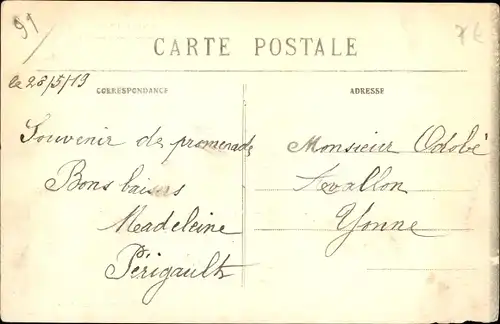 91
CARTE POSTALE
le 28/5/19
CORRESPONDANCE
ADRESSE
Souvenir de promenade
Bons baisers
Madeleine
Périgault
Monsieur Odobé
Avallon
Yonne